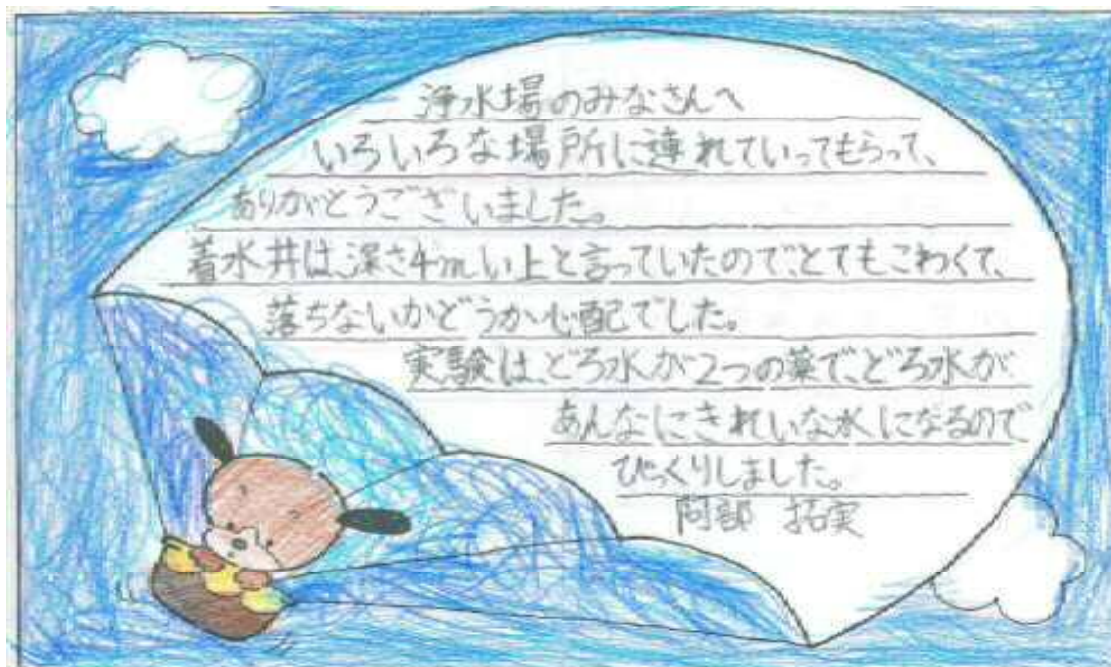 浄水場のみなさんへ
いろいろな場所に連れていってもらって、
ありがとうございました。
着水井は、深さ4mい上と言っていたので、とてもこわくて、
落ちないかどうか心配でした。
実験は、どろ水が2つの薬で、どろ水が
あんなにきれいな水になるので
びっくりしました。
阿部 拓実